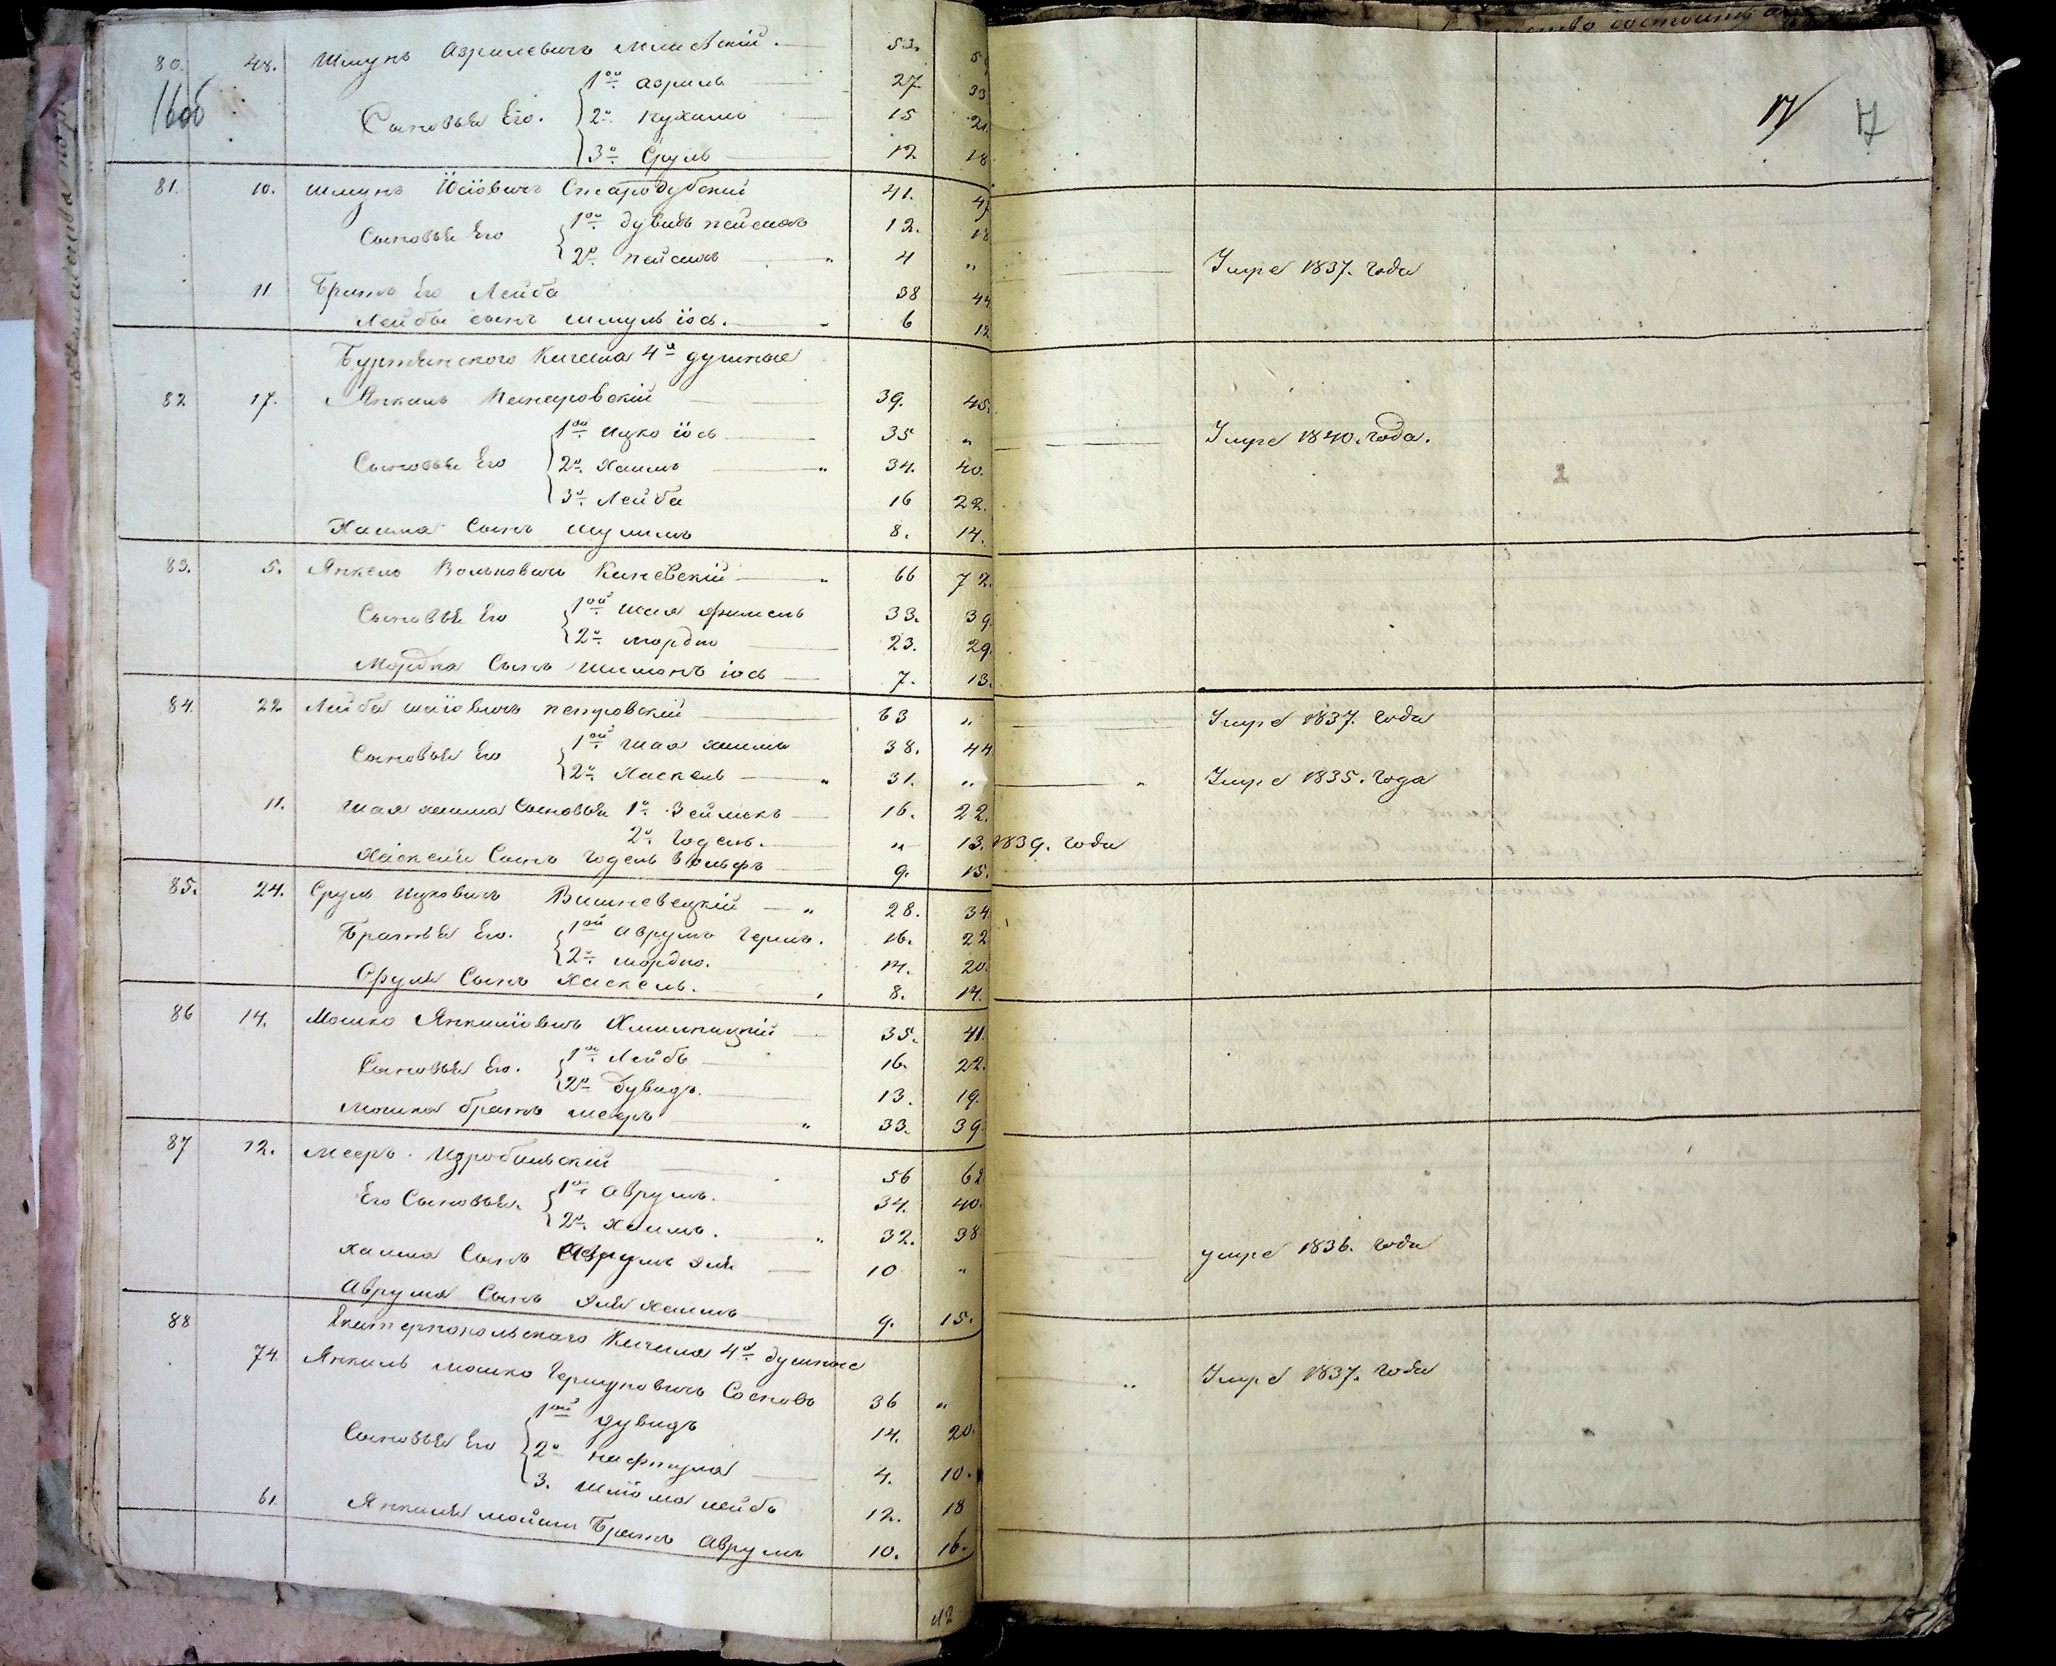 80. 48. Шмунъ Азрилевичъ 53.
16об
1ой Азриль 27 33
Сыновья Его. 2й Нухимъ 15 21.
3й Сруль 12 18
17 17
81. 10. Шмунъ Іосіовичъ Стародубскій 41. 47
Сыновья Его 1ой Дувидъ Пейсахъ 12. 18
2й Пейсахъ " 4 " Умре 1837. года
11 Братъ Его Лейба 38 44
Лейбы сынъ Шмуль Іось. 6 12
Кагала 4й душные
82 17. Янкель 39. 45.
1ой Ицко Іось 35 " Умре 1840. года.
Сыновья Его 2й Хаимъ " 34. 40.
3й Лейба 16 22.
Хаима Сынъ Шулимъ 8. 14.
83. 5. Янкель Вольковичъ Каневскій " 66 72.
Сыновья Его 1ой Шая 33. 39.
2й Мордко 23. 29.
Мордка Сынъ Шимонъ Іось 7. 13.
84. 22 Лейба Шаіовичъ Петровскій 63 " Умре 1837. года
Сыновья Его 1ой Шая Хаимъ 38. 44
2й Хаскель " 31. " Умре 1835. года
11. Шая Хаима Сыновья 1й Зельманъ 16. 22.
2й Годель. " 13. 1839. года
Хаскеля Сынъ Годель Вольфъ 9. 15.
85. 24. Сруль Ицковичъ Вишневецкій " 28. 34
Братья Его. 1ой Аврумъ Гершъ. 16. 22
2й Мордко. 14. 20.
Сруля Сынъ Хаскель. 8. 14.
86 14. Мошко Янкеліовичъ Хмильницкій 35. 41.
Сыновья Его. 1й Лейбъ 16. 22.
2й Дувидъ. 13. 19.
Мошка братъ Мееръ " 33. 39.
87 12. Мееръ 56 62
Его Сыновья. 1й Аврумъ. 34. 40.
2й Хаимъ. " 32. 38
Хаима Сынъ Аврумъ Эля 10 " умре 1836. года
Аврума Сынъ Эля Хаимъ 9. 15.
88 Екатеринопольскаго Кагала 4й душные
74. Янкель Мошко Гершковичъ " 36 " Умре 1837. года
1ой Дувидъ 14. 20.
Сыновья Его 2й Нафтула 4. 10.
3. Шлёма Лейбъ 12. 18
61. Янкеля Мошки Братъ Аврумъ 10. 16.
42